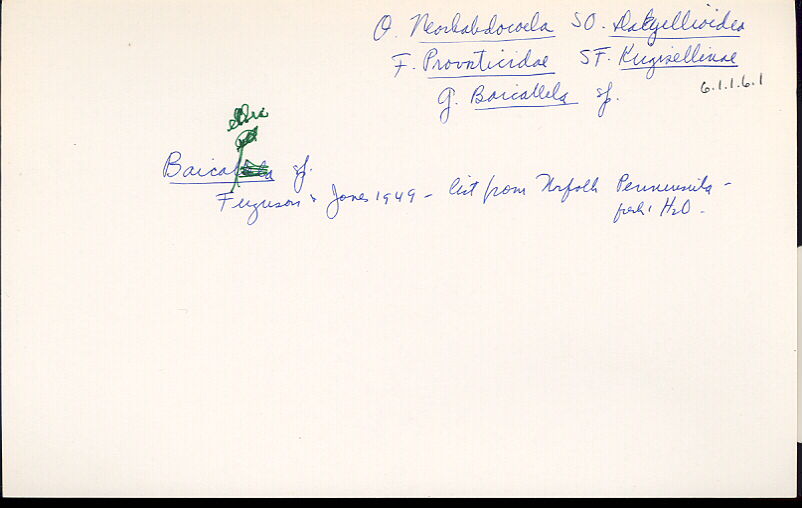 O. Neorhabdocoela SO. Dalyellioidea
F. Provorticidae SF. Kirgisellinae
G. Baicallela sp. 6.1.1.6.1
ella
Baical sp.
Ferguson & Jones 1949 - list from Norfolk Penninsula -
fresh H2O.